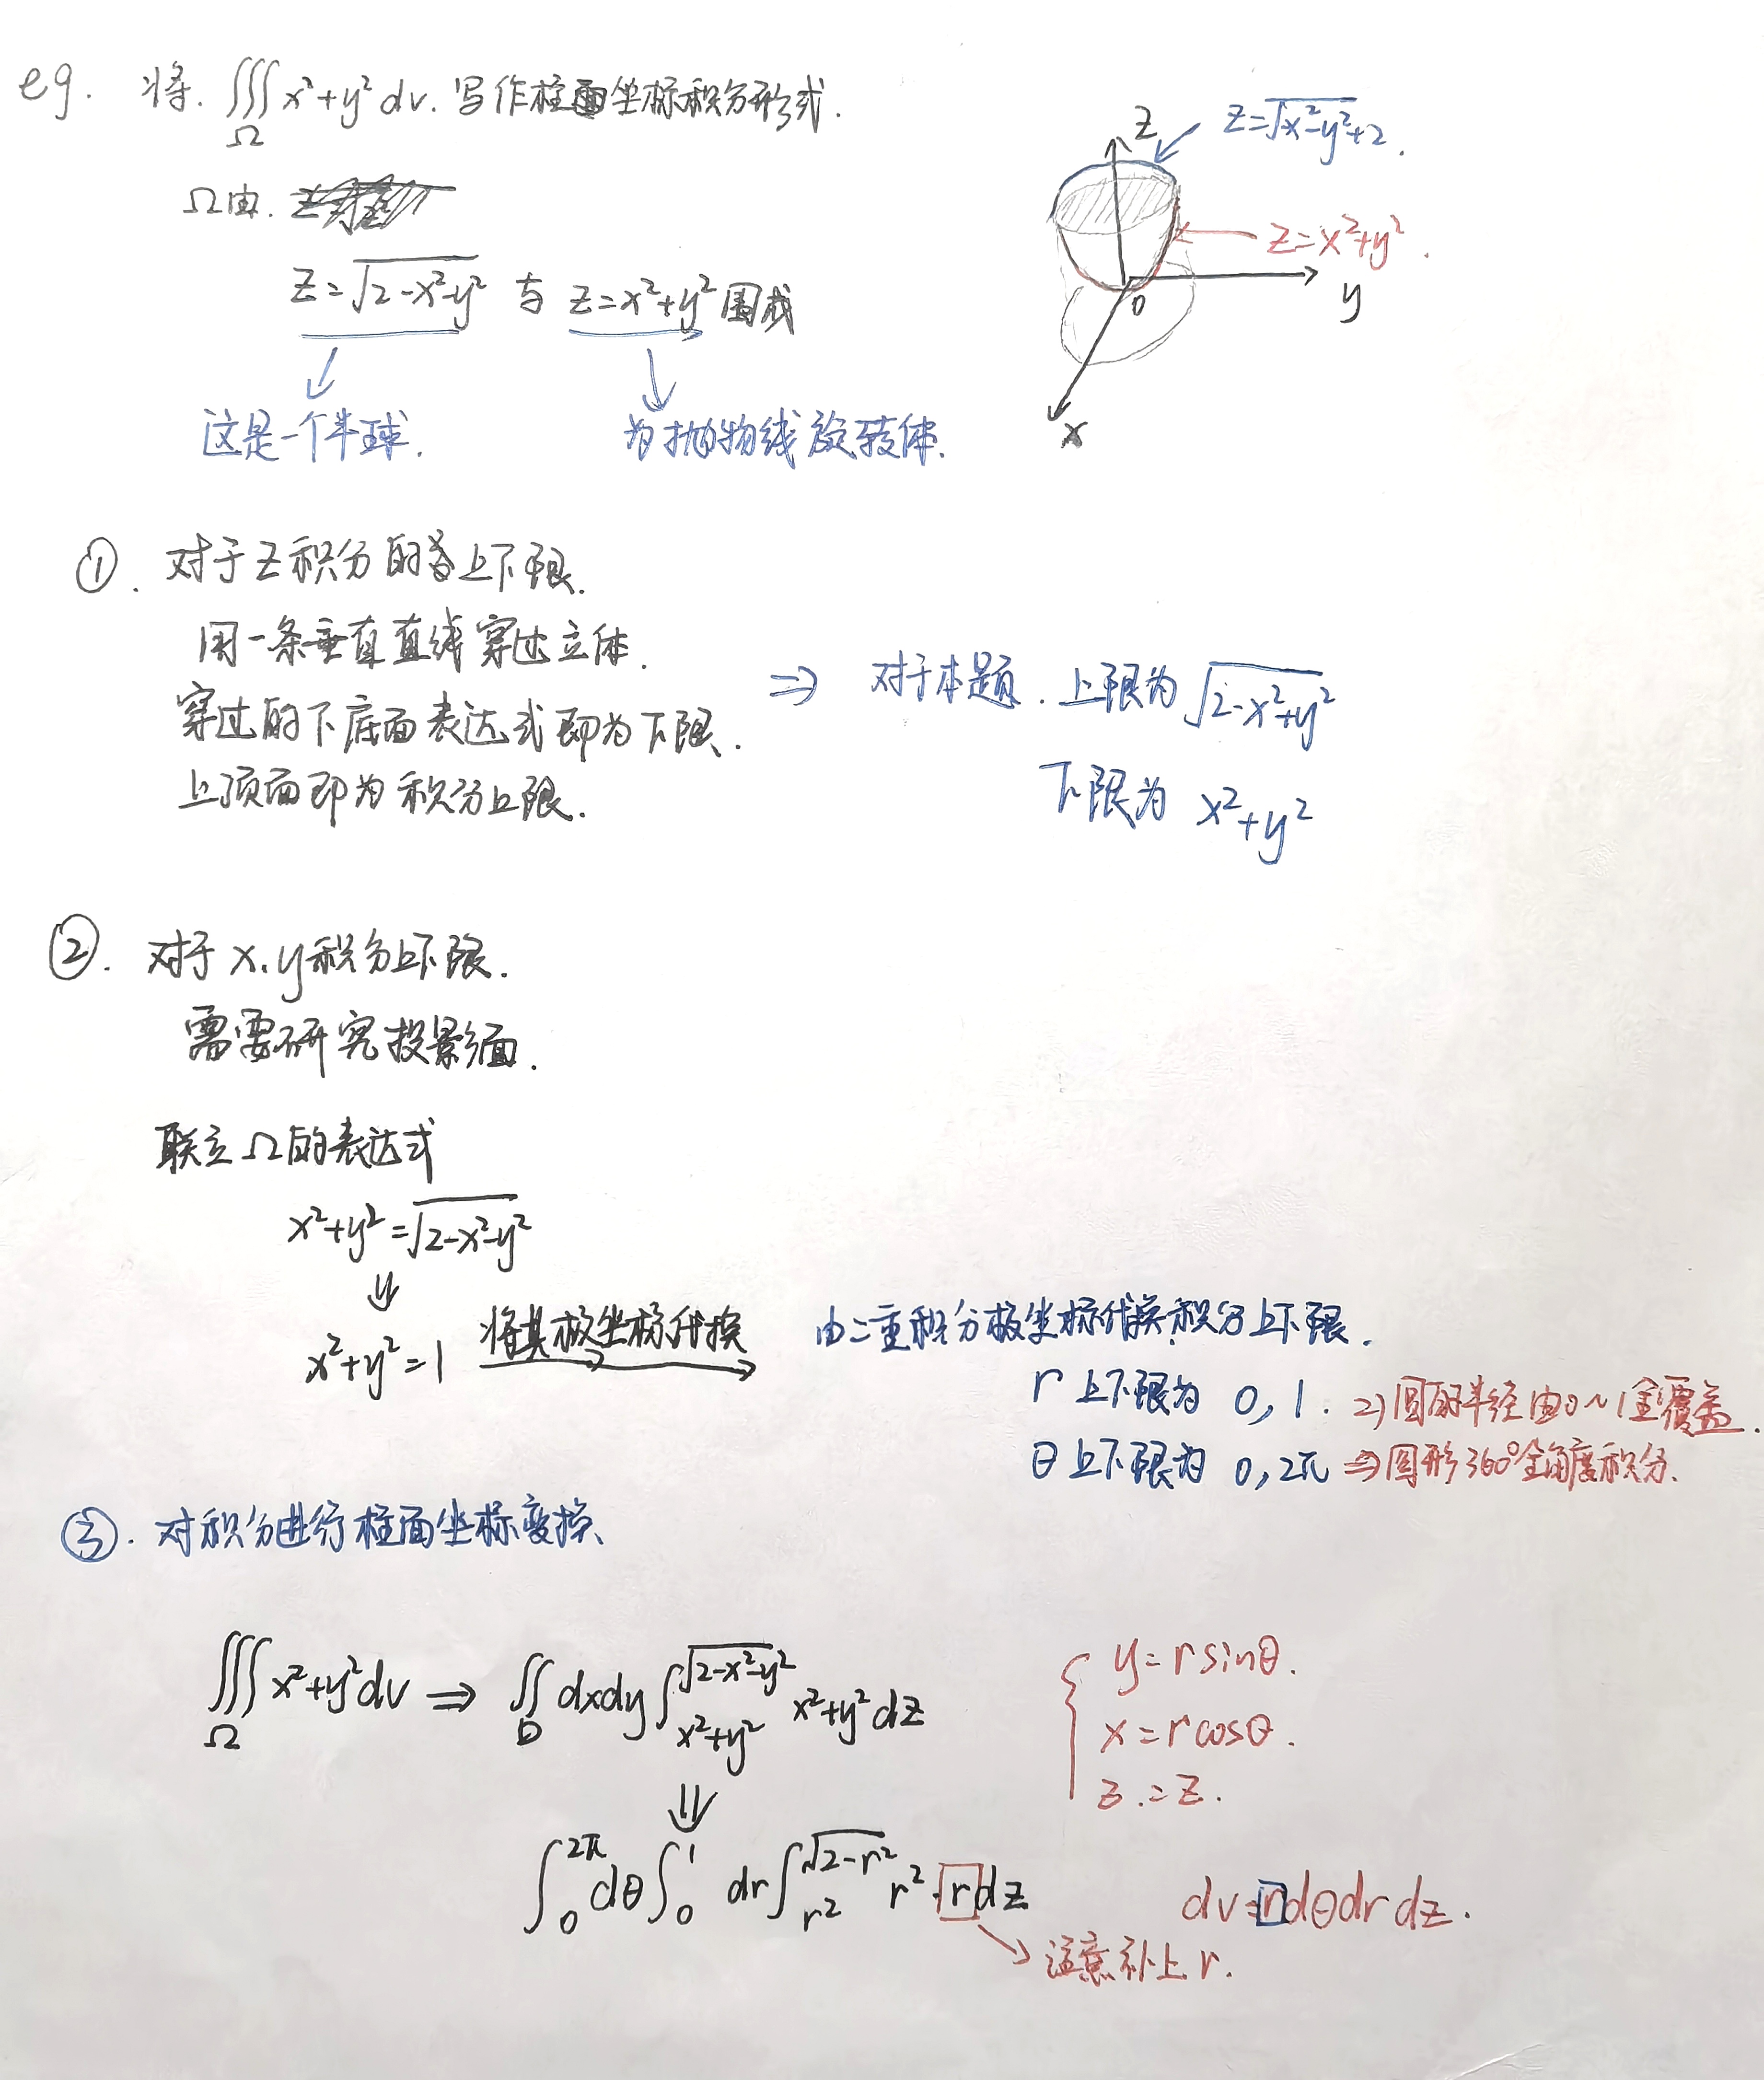 eg. 将. ∭_Ω x²+y² dv. 写作柱面坐标积分形式.
Ω由.
z=√(2-x²-y²) 与 z=x²+y² 围成
这是一个半球.
为抛物线旋转体.
z
z=√(x²-y²+2).
z=x²+y².
o
y
x
①. 对于z积分的上下限.
用一条垂直直线穿过立体.
穿过的下底面表达式即为下限.
上顶面即为积分上限.
⇒ 对于本题. 上限为√(2-x²+y²)
下限为 x²+y²
②. 对于x.y积分上下限.
需要研究投影面.
联立Ω的表达式
x²+y²=√(2-x²-y²)
⇓
x²+y²=1 将其极坐标代换 由二重积分极坐标代换积分上下限.
r 上下限为 0, 1. ⇒圆的半径由0~1全覆盖.
θ 上下限为 0, 2π ⇒圆形360°全角度积分.
③. 对积分进行柱面坐标变换.
∭_Ω x²+y² dv ⇒ ∬_D dxdy ∫_{x²+y²}^{√(2-x²-y²)} x²+y² dz
⇓
∫_0^{2π} dθ ∫_0^1 dr ∫_{r²}^{√(2-r²)} r²·r dz
注意补上r.
y=rsinθ.
x=rcosθ.
z.=z.
dv=rdθdrdz.